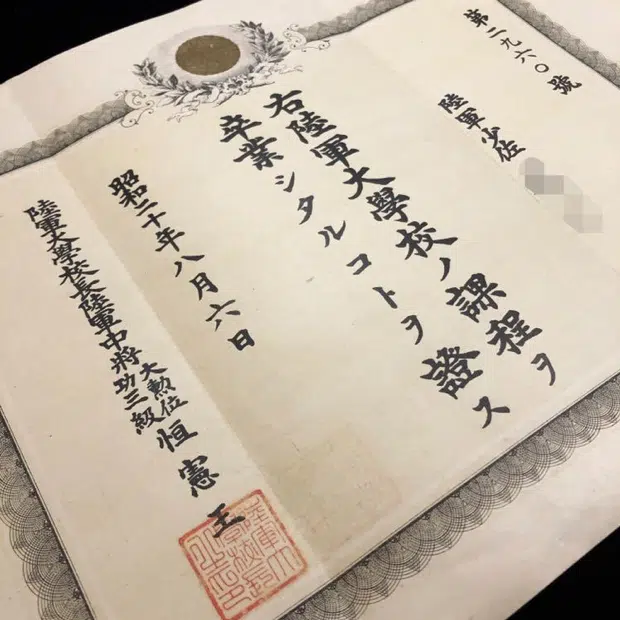 第二九六〇號
陸軍少佐
右陸軍大學校ノ課程ヲ
卒業シタルコトヲ證ス
昭和二十年八月六日
陸軍大學校長陸軍中將大勲位功三級恒憲王